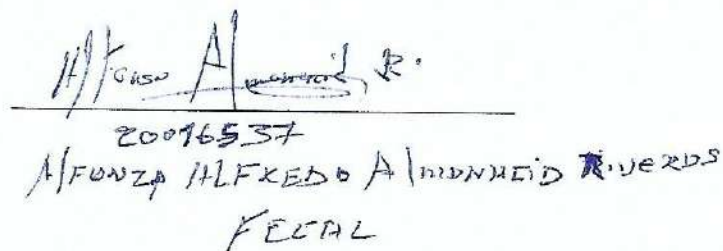 Alfonso Almonacid R.
20096537
AlFONZO ALFREDO AlmONACiD RiVEROS
FECAL